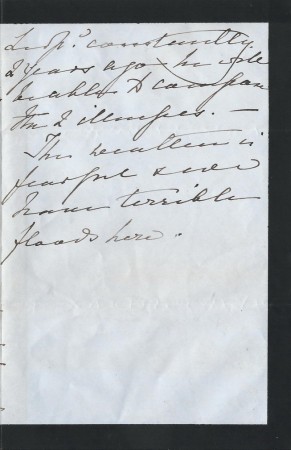 Leop.d constantly
2 years ago – he will
be able to compare
the 2 illnesses. –
The weather is
fearful & we
have terrible
floods here.